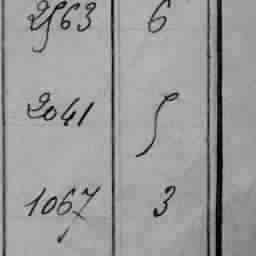 2563 6
2041 5
1067 3